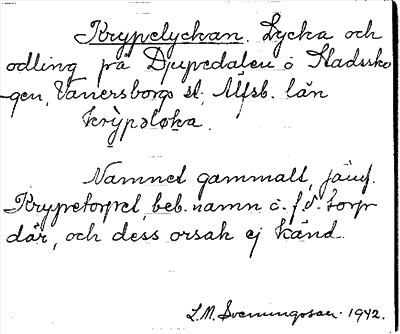 Krypelyckan. Lycka och
odling på Djupedalen ö Stadssko-
gen, Vänersborgs st; Älfsb. län
krỳpəlo̩ka.
Namnet gammalt, jämf.
Krypetorpet, beb.namn å f.d. torp
där, och dess orsak ej känd.
L.M. Svenungsson 1942.